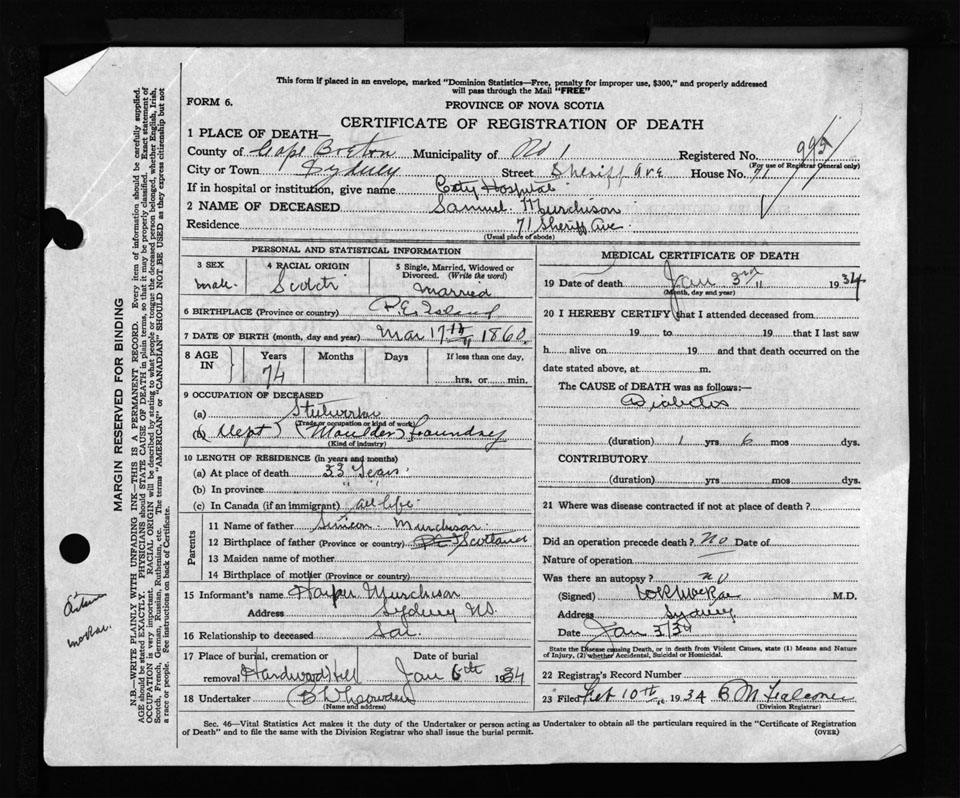 This form if placed in an envelope, marked "Dominion Statistics—Free, penalty for improper use, $300," and properly addressed
will pass through the Mail "FREE"
FORM 6.
PROVINCE OF NOVA SCOTIA
CERTIFICATE OF REGISTRATION OF DEATH
1 PLACE OF DEATH—
County of Cape Breton Municipality of No 1 Registered No. 992
(For use of Registrar General only)
City or Town Sydney Street Sheriff Ave House No. 71
If in hospital or institution, give name City Hospital
2 NAME OF DECEASED Samuel Murchison
Residence 71 Sheriff Ave
(Usual place of abode)
PERSONAL AND STATISTICAL INFORMATION
3 SEX
male
4 RACIAL ORIGIN
Scotch
5 Single, Married, Widowed or
Divorced. (Write the word)
Married
6 BIRTHPLACE (Province or country) P.E. Island
7 DATE OF BIRTH (month, day and year) Mar 17th 1860
8 AGE IN
Years Months Days If less than one day,
74
hrs. or min.
9 OCCUPATION OF DECEASED
(a) Steelworker
(Trade or occupation or kind of work)
(b) Dept (Moulder) Foundrey
(Kind of industry)
10 LENGTH OF RESIDENCE (in years and months)
(a) At place of death 33 Years
(b) In province " "
(c) In Canada (if an immigrant) all life
Parents
11 Name of father Simeon Murchison
12 Birthplace of father (Province or country) Scotland
13 Maiden name of mother
14 Birthplace of mother (Province or country)
15 Informant's name Harper Murchison
Address Sydney NS.
16 Relationship to deceased Son
17 Place of burial, cremation or
removal Hardwood Hill
Date of burial
Jan 6th 1934
18 Undertaker
(Name and address)
MEDICAL CERTIFICATE OF DEATH
19 Date of death Jan 3rd 1934
(Month, day and year)
20 I HEREBY CERTIFY that I attended deceased from
19 to 19 that I last saw
h alive on 19 and that death occurred on the
date stated above, at m.
The CAUSE of DEATH was as follows:—
Diabetes
(duration) 1 yrs 6 mos dys.
CONTRIBUTORY
(duration) yrs mos dys.
21 Where was disease contracted if not at place of death?
Did an operation precede death? No Date of
Nature of operation
Was there an autopsy? no
(Signed) M.D.
Address Sydney
Date Jan 3/34
State the Disease causing Death, or in death from Violent Causes, state (1) Means and Nature
of Injury, (2) whether Accidental, Suicidal or Homicidal.
22 Registrar's Record Number
23 Filed 10th 1934 B M
(Division Registrar)
Sec. 46—Vital Statistics Act makes it the duty of the Undertaker or person acting as Undertaker to obtain all the particulars required in the "Certificate of Registration
of Death" and to file the same with the Division Registrar who shall issue the burial permit.
(OVER)
MARGIN RESERVED FOR BINDING
N.B.—WRITE PLAINLY WITH UNFADING INK—THIS IS A PERMANENT RECORD. Every item of information should be carefully supplied.
AGE should be stated EXACTLY. PHYSICIANS should STATE CAUSE OF DEATH in plain terms, so that it may be properly classified. Exact statement of
OCCUPATION is very important. RACIAL ORIGIN will be described by stating to what people or tongue the deceased person belonged, whether English, Irish,
Scotch, French, German, Russian, Ruthenian, etc. The terms "AMERICAN" or "CANADIAN" SHOULD NOT BE USED as they express citizenship but not
a race or people. See instructions on back of Certificate.